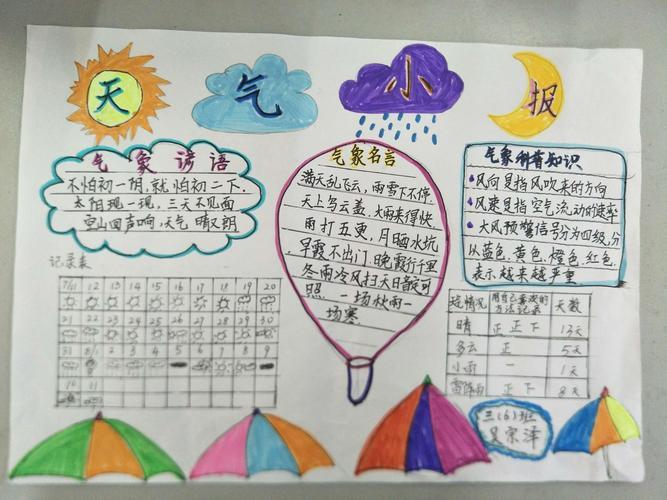 天气小报
气象谚语
不怕初一阴,就怕初二下.
太阳现一现,三天不见面
空山回声响,天气晴又朗
气象名言
满天乱飞云,雨雪下不停
天上乌云盖,大雨来得快
雨打五更,月晒水坑
早霞不出门,晚霞行千里
冬雨冷风扫天日都可
照 一场秋雨一
场寒
气象科普知识
风向是指风吹来的方向
风速是指空气流动的速率
大风预警信号分为四级,分
从蓝色,黄色,橙色,红色.
表示越来越严重
记录表
7/11 12 13 14 15 16 17 18 19 20
21 22 23 24 25 26 27 28 29 30
31 8/1 2 3 4 5 6 7 8 9
10 11
情况 用自己喜欢的方法记录 天数
晴 正正下 13天
多云 正 5天
小雨 一 1天
雷阵雨 正下 8天
三(6)班
吴宗泽